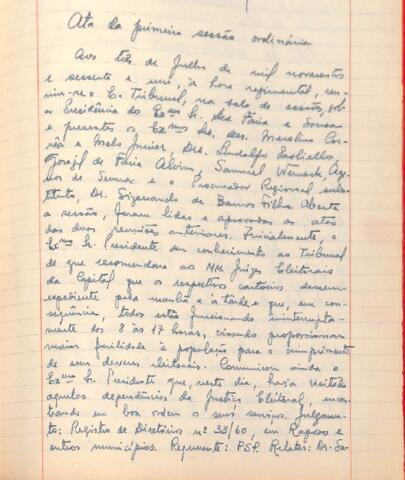 Ata da primeira sessão ordinária
Aos três de Julho de mil novecentos
e sessenta e um, à hora regimental, reu-
niu-se o E. Tribunal, na sala de sessões, sob
a Presidência do Exmo Sr. Des. Faria e Sousa
e presentes os Exmos Srs. Des. Marcelino Cor-
rêa e Melo Junior, Drs. Lindolfo Paoliello,
Gorazil de Faria Alvim, Samuel Werneck,
de e o Procurador Regional subs-
tituto, Dr. Sizenando de Barros Filho. Aberta
a sessão, foram lidas e aprovadas as atas
das duas reuniões anteriores. Inicialmente, o
Exmo Sr. Presidente deu conhecimento ao Tribunal
de que recomendara ao MM. Juízes Eleitorais
da Capital que os respectivos cartórios dessem
expediente pela manhã e à tarde e que, em con-
sequência, todos estão funcionando ininterrupta-
mente das 8 às 17 horas, visando proporcionar
maior facilidade à população para o cumprimento
de seus deveres eleitorais. Comunicou ainda o
Exmo Sr. Presidente que, neste dia, havia visitado
aquelas dependências da Justiça Eleitoral, encon-
trando em boa ordem os seus serviços. Julgamen-
to: Registro de Diretórios nº 33/60, em Raposos e
outros municípios. Requerente: PSP. Relator: Dr. Sa-